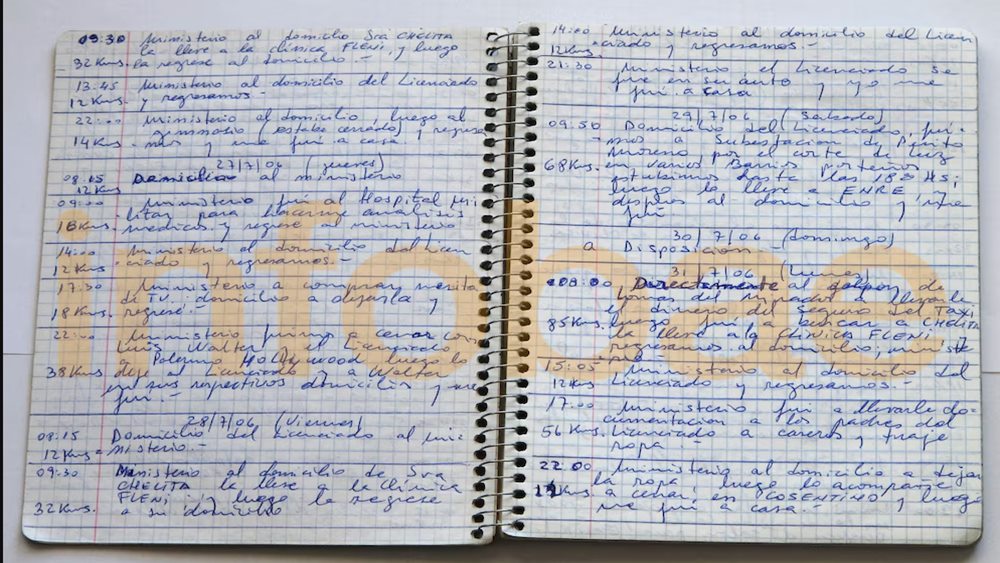 09:30 Ministerio al domicilio Sra CHELITA
la lleve a la clínica FLENI, y luego
32 Kms. la regrese al domicilio.-
13:45 Ministerio al domicilio del Licenciado
12 Kms. y regresamos.-
22:00 Ministerio al domicilio, luego al
gimnasio (estaba cerrado) y regresa
14 Kms - mos y me fui a casa.
27/7/06 (jueves)
08:15 Domicilio al ministerio
12 Kms
09:00 Ministerio fui al Hospital Mi
- litar para hacerme analisis
18 Kms. medicos y regrese al ministerio
14:00 Ministerio el domicilio del Licen
12 Kms - ciado y regresamos.-
17:30 Ministerio a comprar mesita
de TV. domicilio a dejarla y
18 Kms regrese.-
22:00 Ministerio fuimos a cenar con
Luis Walter y el Licenciado
a Palermo HOLLYWOOD luego lo
38 Kms deje al Licenciado y a Walter
en sus respectivos domicilios y me
fui.-
28/7/06 (Viernes)
08:15 Domicilio del Licenciado al mi-
12 Kms - nisterio.
09:30 Ministerio al domicilio de Sra
CHELITA la lleve a la clínica
FLENI y luego la regrese
32 Kms a su domicilio
14:00 Ministerio al domicilio del Licen
12 Kms - ciado y regresamos.-
21:30 Ministerio el Licenciado se
fue en su auto y yo me
fui a casa
29/7/06 (Sabado)
09:50 Domicilio del Licenciado, fui-
mos a Subestacion de Perito
Moreno por el corte de luz
68 Kms. en varios Barrios porteños
estubimos hasta las 18:00 HS;
luego lo lleve a ENRE y
despues al domicilio y me
fui
30/7/06 (domingo)
a Disposicion
31/7/06 (Lunes)
08:00 Directamente al galpon de
a llevarle
el dinero del seguro del TAXI
85 Kms. luego fui a buscar a CHELITA
la lleve a la CLINICA FLENI,
regresamos al domicilio, ministe
rio
15:05 Ministerio al domicilio del
12 Kms Licenciado y regresamos.-
17:00 Ministerio fui a llevarle do-
cumentacion a los padres del
56 Kms. Licenciado a caseros y traje
ropa -
22:00 Ministerio al domicilio a dejar
la ropa, luego lo acompañe
Kms a cenar en COSENTINO y luego
me fui a casa.-
infobae